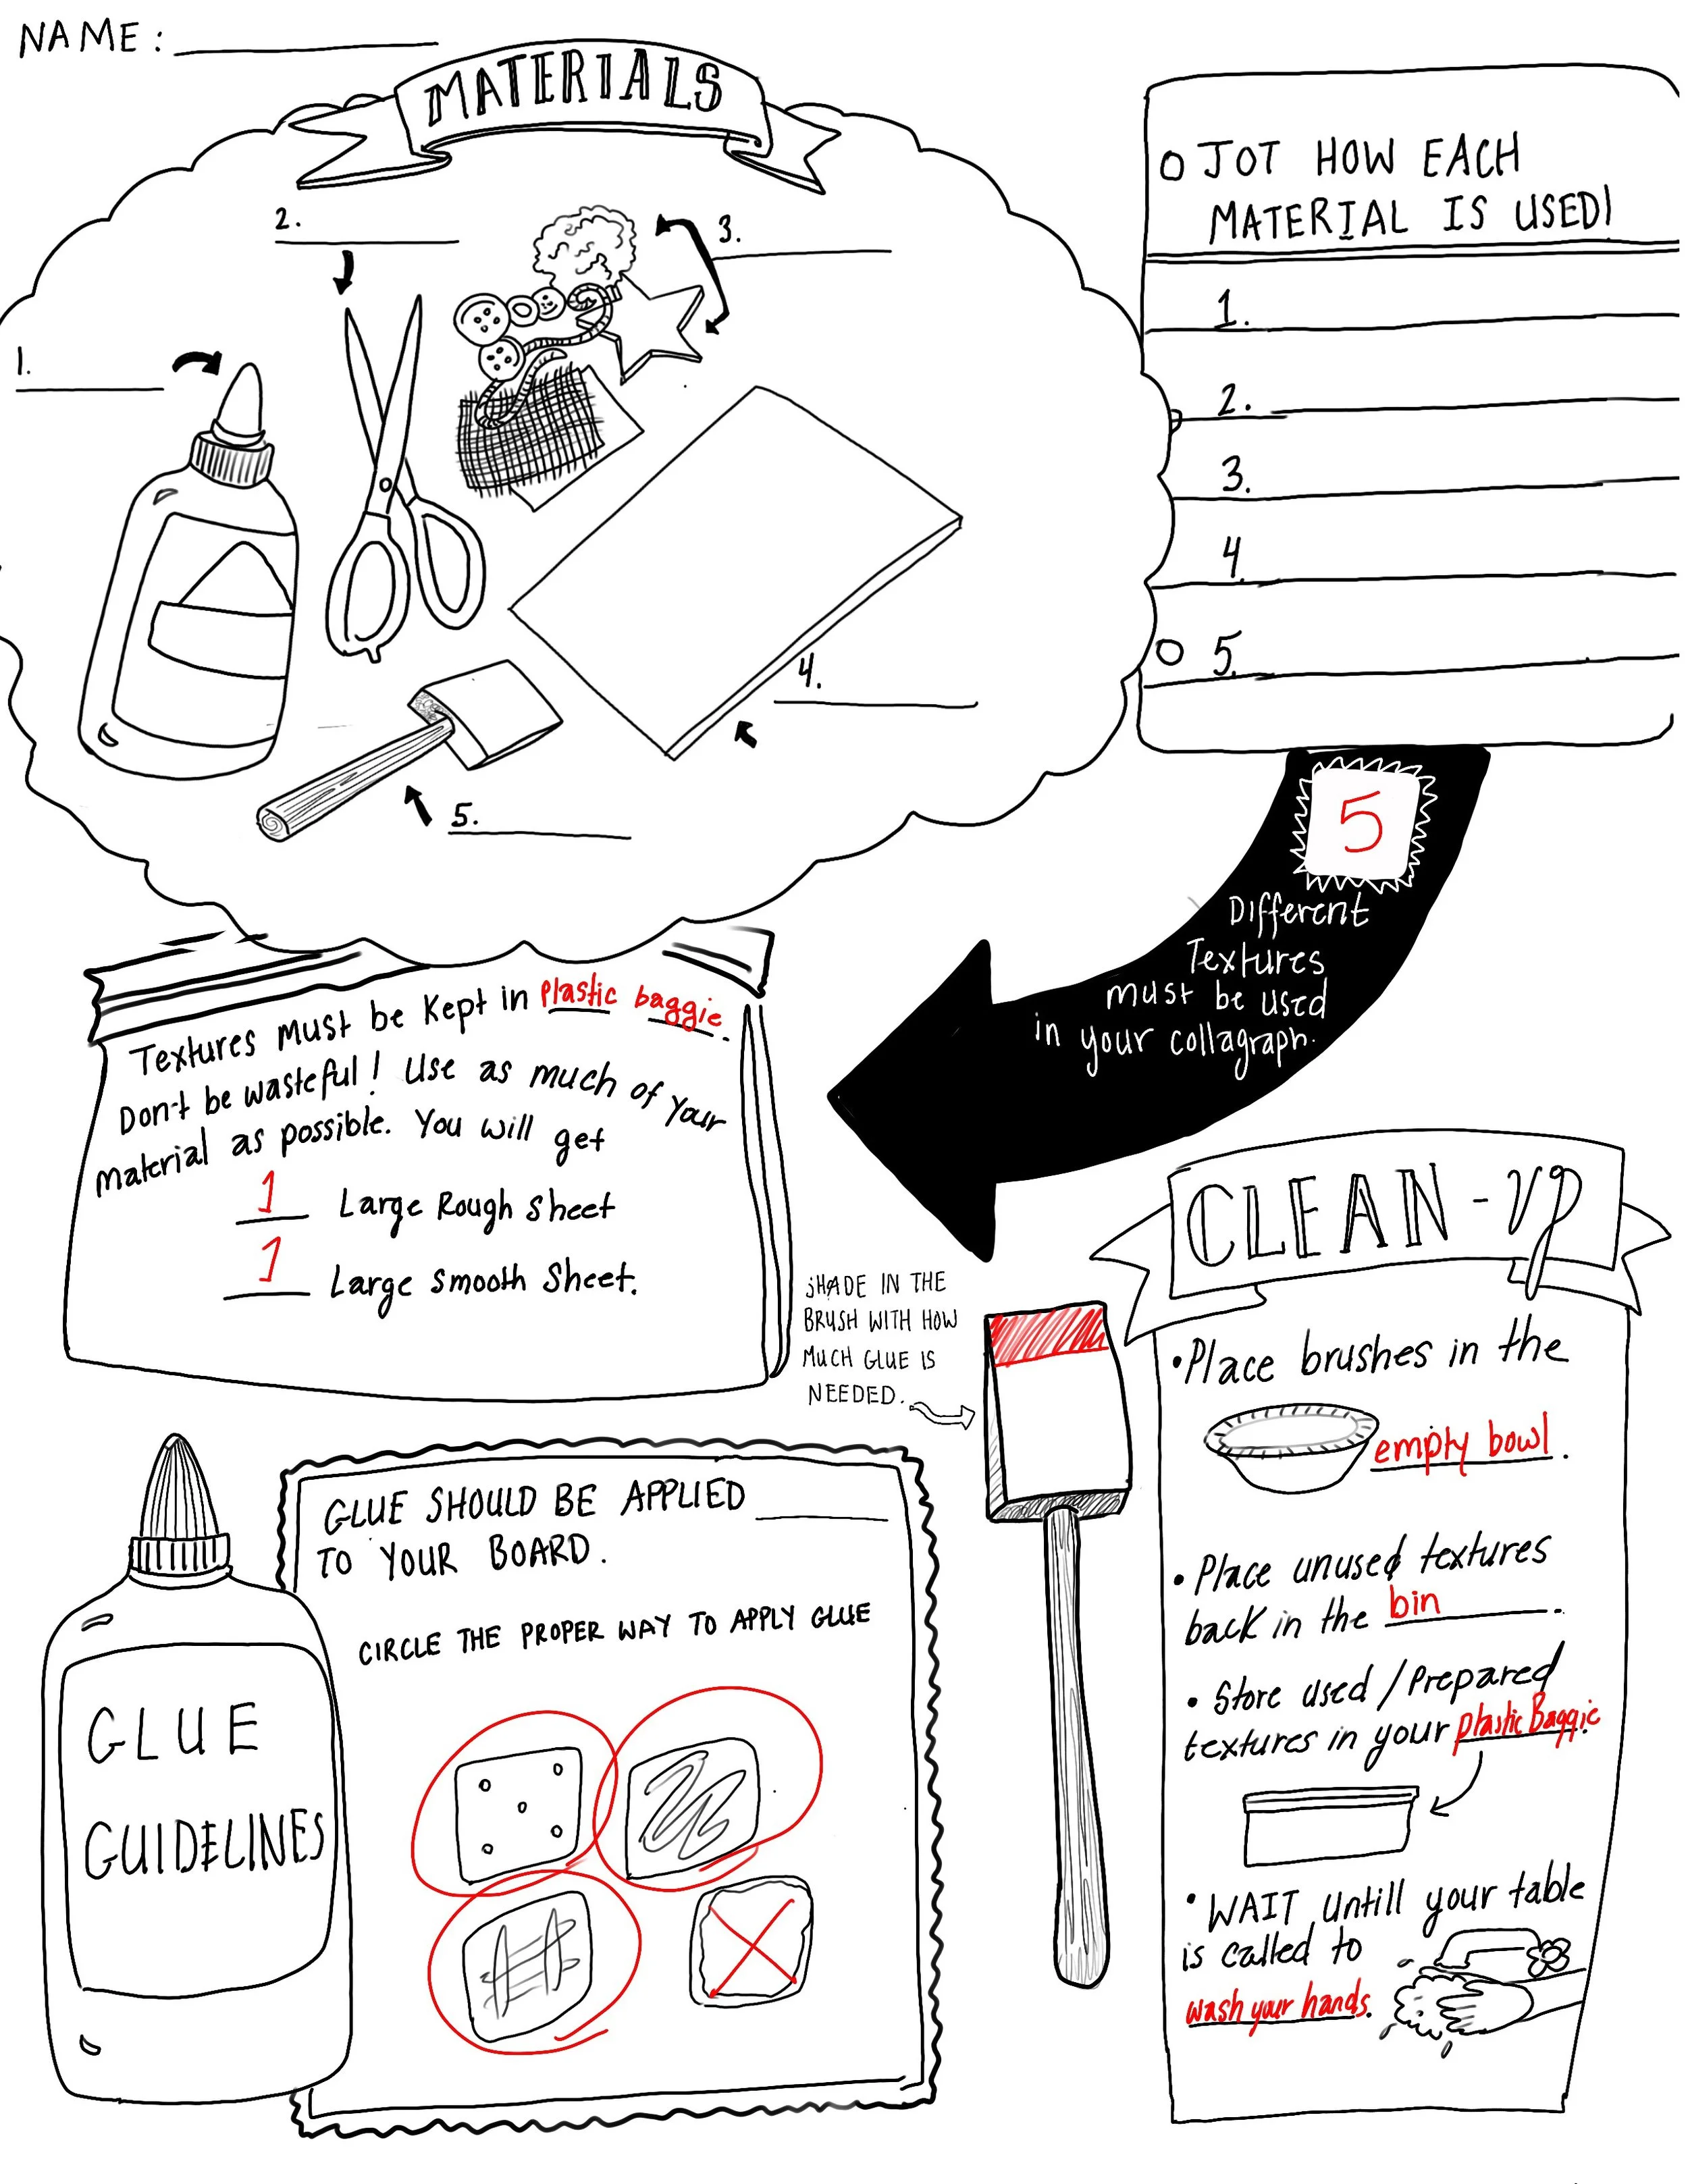 NAME:
MATERIALS
1.
2.
3.
4.
5.
JOT HOW EACH
MATERIAL IS USED!
1.
2.
3.
4
5.
5
Different
Textures
must be used
in your collagraph.
Textures must be kept in plastic baggie.
Don't be wasteful! Use as much of your
material as possible. You will get
1 Large Rough Sheet
1 Large Smooth Sheet.
SHADE IN THE
BRUSH WITH HOW
MUCH GLUE IS
NEEDED.
GLUE
GUIDELINES
GLUE SHOULD BE APPLIED
TO YOUR BOARD.
CIRCLE THE PROPER WAY TO APPLY GLUE
CLEAN-UP
•Place brushes in the
empty bowl.
•Place unused textures
back in the bin.
•Store used/Prepared
textures in your plastic Baggie.
•WAIT untill your table
is called to
wash your hands.